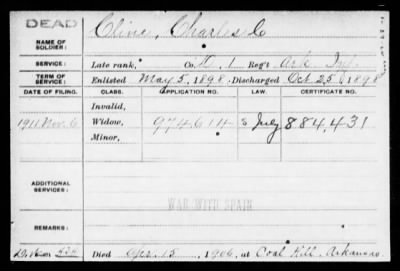 DEAD
Cline, Charles C
NAME OF SOLDIER:
SERVICE: Late rank, Co. D, 1 Reg't Ark Inf.
TERM OF SERVICE: Enlisted May 5, 1898 Discharged Oct 25, 1898
DATE OF FILING. CLASS. APPLICATION NO. LAW. CERTIFICATE NO.
Invalid,
1911 Nov. 6 Widow, 974614 July 884,431
Minor,
ADDITIONAL SERVICES:
WAR WITH SPAIN
REMARKS:
Died Apr. 15, 1906, at Coal Hill, Arkansas